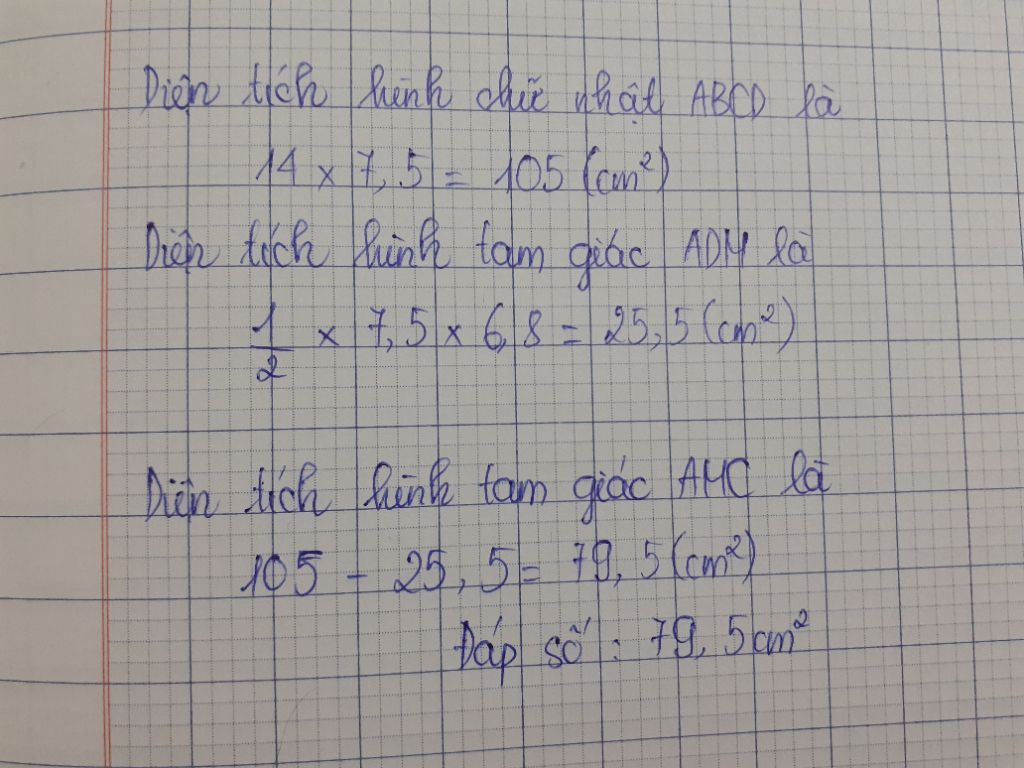 Diện tích hình chữ nhật ABCD là
14 x 7,5 = 105 (cm²)
Diện tích hình tam giác ADM là
1/2 x 7,5 x 6,8 = 25,5 (cm²)
Diện tích hình tam giác AMC là
105 - 25,5 = 79,5 (cm²)
Đáp số : 79,5cm²